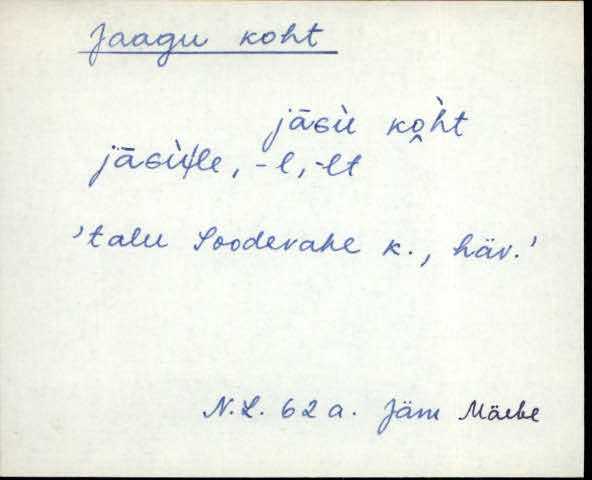 Jaagu koht
jāɢù ko̭h̀t
jāɢù/le, -l, -lt
'talu Soodevahe k., häv.'
N.L. 62 a. Jäm Mäebe